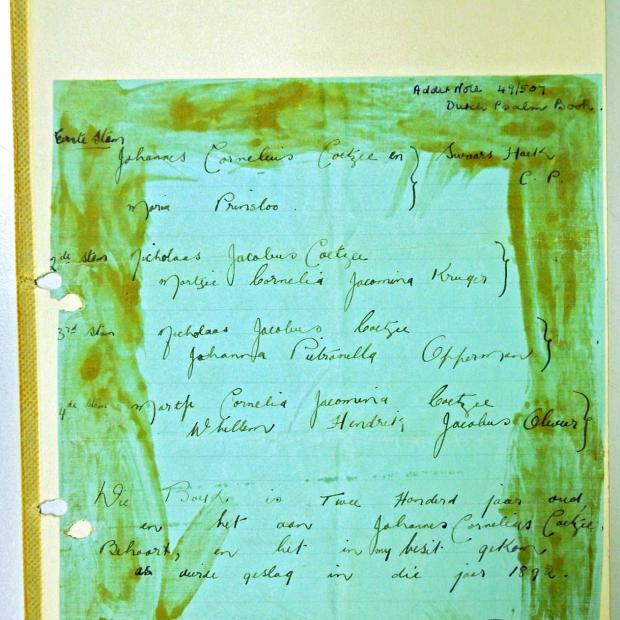 Addit Note 49/507
Dutch Psalm Book.
Eerste Stam
Johannes Cornelius Coetzee en } Swaars Hoek
C. P.
Maria Prinsloo.
2de stam Nicholaas Jacobus Coetzee
Martjie Cornelia Jacomina Kruger }
3rd stam Nicholaas Jacobus Coetzee
Johanna Petronella Opperman }
4de stam Martje Cornelia Jacomina Coetzee
Whillem Hendrik Jacobus Olivier }
Die Boek is Twee Honderd jaar oud
en het aan Johannes Cornelius Coetzee,
Behoort, en het in my besit gekom
as durde geslag in die jaar 1892.